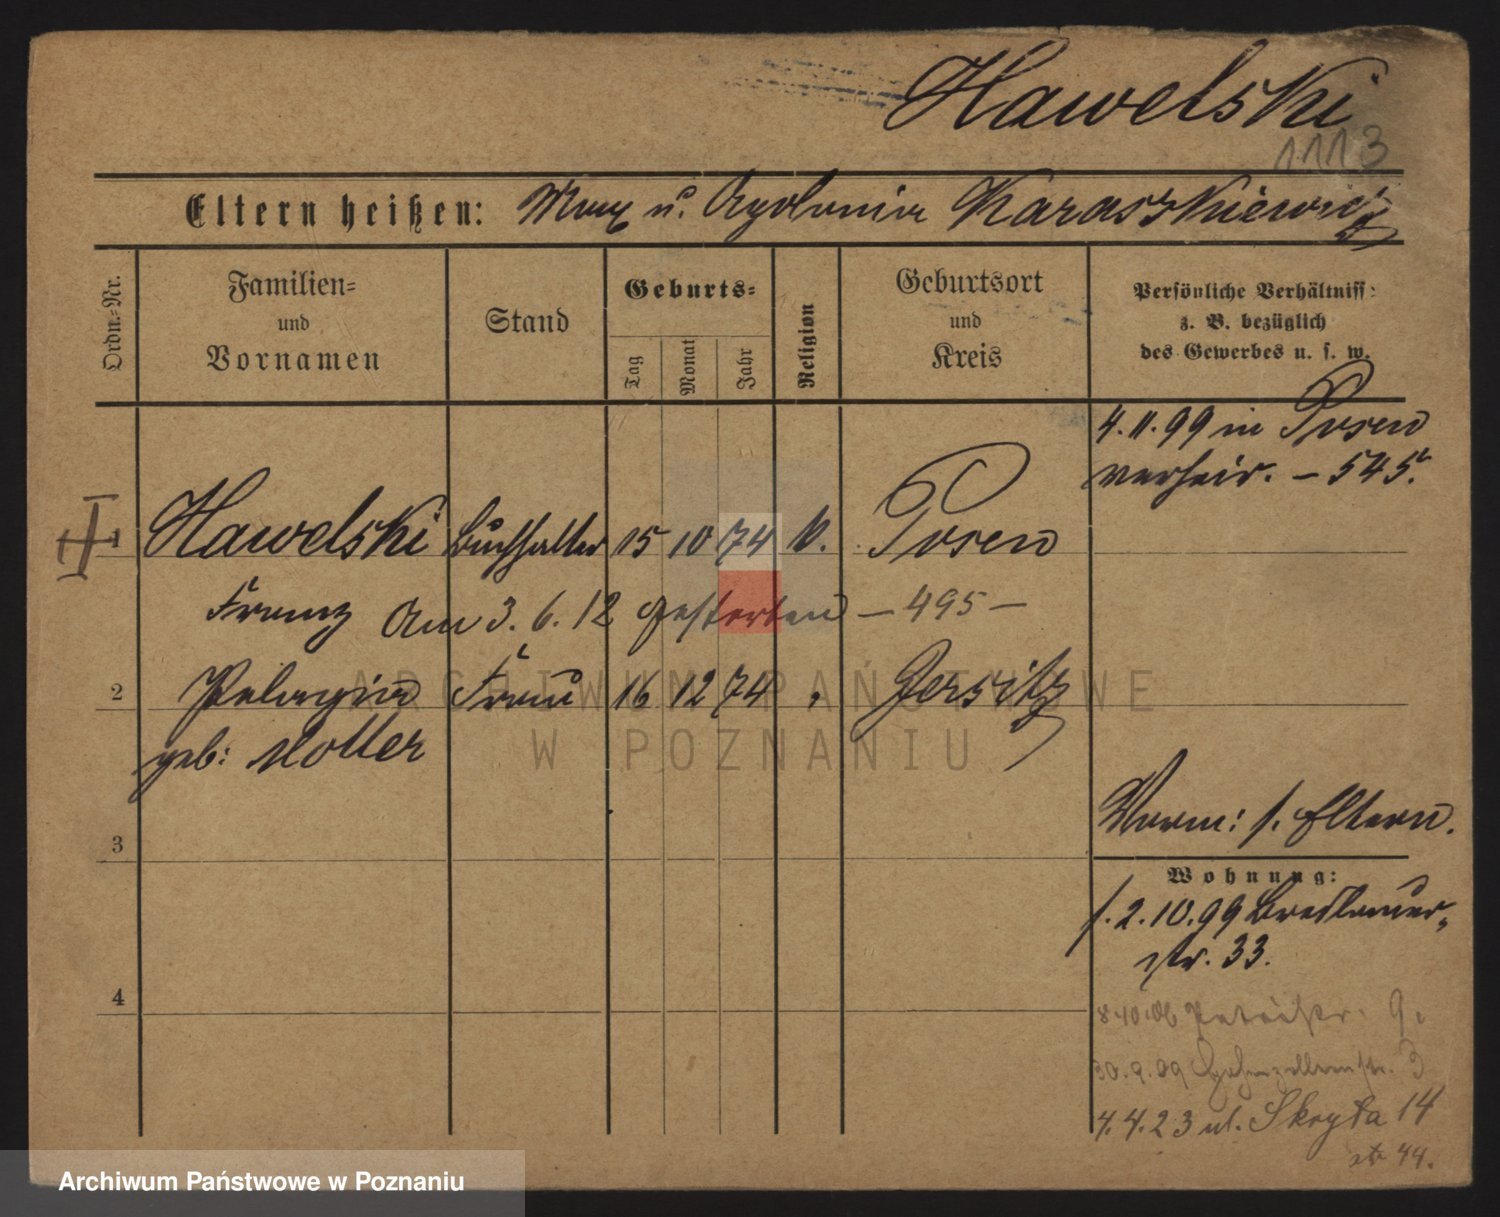 Hawelski
1113
Eltern heißen: Max u. Apolonia Karaszkiewicz
Ordn.-Nr.
Familien- und Vornamen
Stand
Geburts-
Tag Monat Jahr
Religion
Geburtsort und Kreis
Persönliche Verhältniss: z. B. bezüglich des Gewerbes u. s. w.
4.11.99 in Posen
verheir. – 545.
1 Hawelski Buchhalter 15 10 74 k. Posen
Franz Am 3.6.12 gestorben – 495 –
2 Pelagia Frau 16 12 74 " Jersitz
geb: Motter
ARCHIWUM PAŃSTWOWE
W POZNANIU
3
Vorm: s. Eltern.
Wohnung:
s. 2.10.99 Breslauer-
str. 33.
4
Petristr. 9.
30.9.09 Hohenzollernstr. 3
4.4.23 ul. Skryta 14
44.
Archiwum Państwowe w Poznaniu